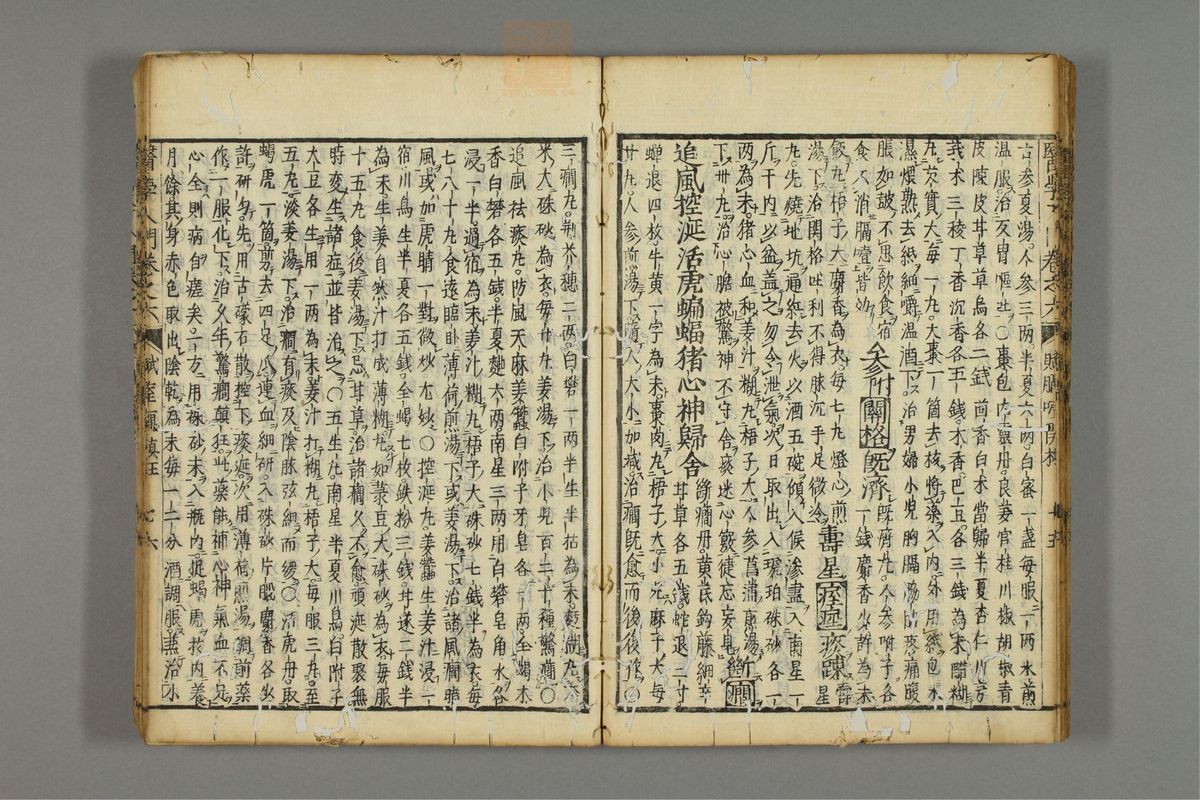 參夏湯人參三兩半夏六兩白蜜一盞每服一兩水煎
溫服治反胃嘔吐○棗包內靈丹良姜官桂川椒胡椒青
皮陳皮甘草草烏各二錢茴香白朮當歸半夏杏仁
莪朮三稜丁香沉香各五錢木香巴豆各三錢為末醋糊
丸芡實大每一丸大棗一箇去核將藥入內外用紙包水
濕煨熟去紙細嚼溫酒下治男婦小兒胸膈脇肋疼痛腹
脹如鼓不思飲食宿食不消膈噎皆効參附關格既濟既濟丸人參附子各一錢麝香少許為末
糊丸梧子大麝香為衣每七丸燈心煎湯下治關格吐利不得脉沉手足微冷壽星痓症痰疎壽星
丸先燒地坑通紅去火以酒五碗傾入候滲盡入南星一
斤于內以盆蓋之勿令泄氣次日取出入琥珀硃砂各一
兩為末猪心血和姜汁糊丸梧子大人參菖蒲煎湯
下卅丸治心膽被驚神不守舍痰迷心竅徤忘妄見斷癎
追風控涎活虎蝙蝠猪心神歸舍斷癎丹黃芪鈎藤細辛甘草各五錢蛇退二寸
蟬退四枚牛黃一字為末棗肉丸梧子大小兒麻子大每
廿丸人參煎湯下隨人大小加减治癎既愈而後復作○
三癎丸荆芥穗二兩白礬一兩半生半枯為末糊丸黍
米大硃砂為衣每廿丸姜湯下治小兒百二十種驚癎○
追風祛痰丸防風天麻姜蠶白附子牙皂各一兩全蝎木
香白礬各五錢半夏麯六兩南星三兩用白礬皂角水各
浸一半過宿為末姜汁糊丸梧子大硃砂七錢半為衣每
七八十丸食遠臨卧薄荷煎湯下或姜湯下治諸風癎暗
風或加虎睛一對微炒尤妙○控涎丸姜蠶生姜汁浸一
宿川烏生半夏各五錢全蝎七枚鉄粉三錢甘遂二錢半
為末生姜自然汁打成薄糊丸如菉豆大硃砂為衣每服
十五丸食後姜湯下忌甘草治諸癎久不愈頑涎散聚無
時変生諸症並皆治之○五生丸南星半夏川烏白附子
大豆各生用一兩為末姜汁打糊丸梧子大每服三丸至
五丸淡姜湯下治癎有痰及陰脉弦細而緩○活虎丹取
蝎虎一箇剪去四足爪連血細研入硃砂片腦麝香各少
許研勻先用古礞石散控下痰涎次用薄荷煎湯調前藥
作一服化下治久年驚癎顛狂此藥能補心神氣血不足
心全則病自瘥矣一方用硃砂末入瓶內捉蝎虎於內養
月餘其身赤色取出陰乾為末每一二分酒調服兼治小
醫學入門卷之六
賦癎顛狂
七六
醫學入門卷之六